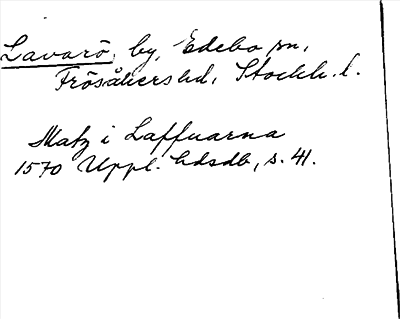 Lavarö, by, Edebo sn,
Frösåkers hd, Stockh. l.
Matz i Laffuarna
1570 Uppl. hdsdb, s. 41.